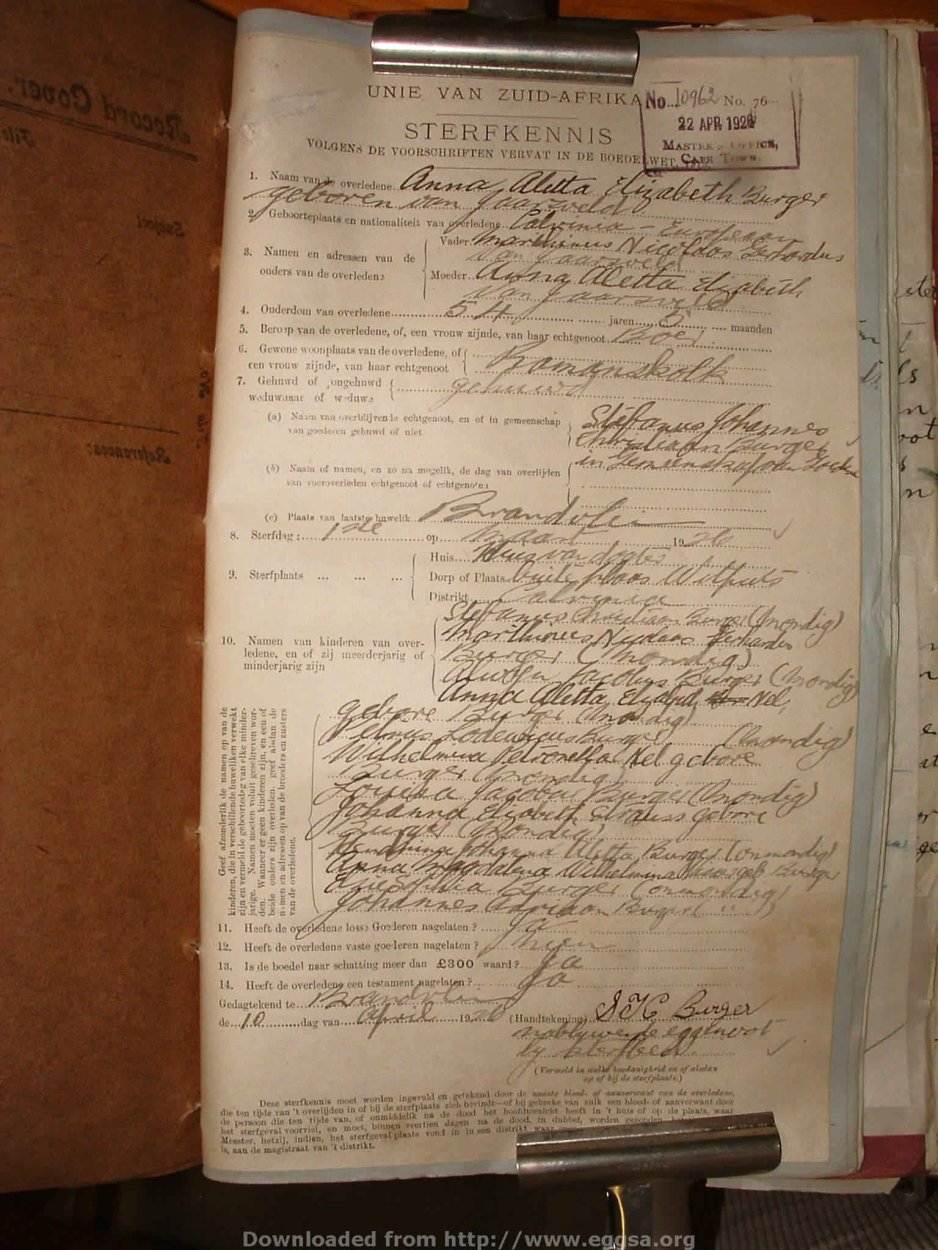 Record Cover.
File
Subject
References:
UNIE VAN ZUID-AFRIKA
No. 10962 No. 76
22 APR 1926
MASTER'S OFFICE,
CAPE TOWN.
STERFKENNIS
VOLGENS DE VOORSCHRIFTEN VERVAT IN DE BOEDELWET, 1913.
1. Naam van de overledene Anna Aletta Elizabeth Burger
geboren van Jaarsveld
2. Geboorteplaats en nationaliteit van overledene Calvinia - European
3. Namen en adressen van de ouders van de overledene
Vader Marthinus Nicolaas Gerhardus
van Jaarsveld
Moeder Anna Aletta Elizabeth
van Jaarsveld
4. Ouderdom van overledene 54 jaren 5 maanden
5. Beroep van de overledene, of, een vrouw zijnde, van haar echtgenoot Boer
6. Gewone woonplaats van de overledene, of
een vrouw zijnde, van haar echtgenoot Bomanskolk
7. Gehuwd of ongehuwd
weduwnaar of weduwe gehuwd
(a) Naam van overblijvende echtgenoot, en of in gemeenschap
van goederen gehuwd of niet
Stefanus Johannes
Christiaan Burger
in Gemeenskap van
(b) Naam of namen, en zo na mogelik, de dag van overlijden
van vooroverleden echtgenoot of echtgenoten
(c) Plaats van laatste huwelik Brandvlei
8. Sterfdag: 1ste op Maart 1926
9. Sterfplaats ... ... ...
Huis Huis van dogter
Dorp of Plaats buite plaas Witputs
Distrikt Calvinia
10. Namen van kinderen van overledene, en of zij meerderjarig of
minderjarig zijn
Stefanus Christiaan Burger (Mondig)
Marthinus Nicolaas Gerhardus
Burger (Mondig)
Jacobus Burger (Mondig)
Anna Aletta Elizabet Nel,
gebore Burger (Mondig)
Petrus Lodewicus Burger (Mondig)
Wilhelmina Petronella Nel gebore
Burger (Mondig)
Louisa Jacoba Burger (Mondig)
Johanna Elizabeth Strauss gebore
Burger (Mondig)
Johanna Aletta Burger (onmondig)
Anna Magdalena Wilhelmina Burger
Burger (onmondig)
Johannes Adriaan Burger
Geef afzonderlik de namen op van de
kinderen, die in verschillende huweliken verwekt
zijn en vermeld de geboortedag van elke minderjarige.
Namen moeten voluit geschreven worden.
Wanneer er geen kinderen zijn, en een of
beide ouders zijn overleden, geef alsdan de
namen en adressen op van de broeders en zusters
van de overledene.
11. Heeft de overledene losse Goederen nagelaten? Ja
12. Heeft de overledene vaste goederen nagelaten? Neen
13. Is de boedel naar schatting meer dan £300 waard? Ja
14. Heeft de overledene een testament nagelaten? Ja
Gedagtekend te Brandvlei
de 10 dag van April 1926 (Handtekening) SJC Burger
nablywende eggenoot
by sterfbed.
(Vermeld in welke hoedanigheid en of alsdan
op of bij de sterfplaats.)
Deze sterfkennis moet worden ingevuld en getekend door de naaste bloed- of aanverwant van de overledene,
die ten tijde van 't overlijden in of bij de sterfplaats zich bevindt—of bij gebreke van zulk een bloed- of aanverwant door
de persoon die ten tijde van, of onmiddellik na de dood het hoofdtoezicht heeft in 't huis of op de plaats, waar
het sterfgeval voorviel, en moet, binnen veertien dagen na de dood, in dubbel, worden gezonden
Meester, hetzij, indien, het sterfgeval plaats vond in in een distrikt waar
is, aan de magistraat van 't distrikt.
Downloaded from http://www.eggsa.org